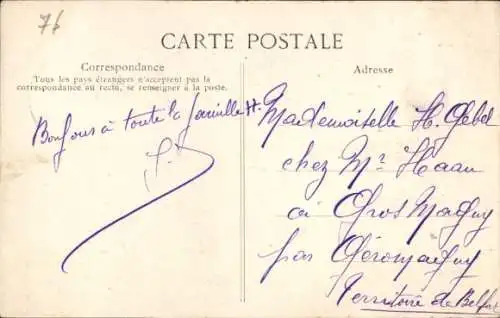 76
CARTE POSTALE
Correspondance
Tous les pays étrangers n'acceptent pas la
correspondance au recto, se renseigner à la poste.
Adresse
Bonjour à toute la famille H.
Mademoiselle H. Gebel
chez Mr Haan
à Gros Magny
par Giromagny
Territoire de Belfort